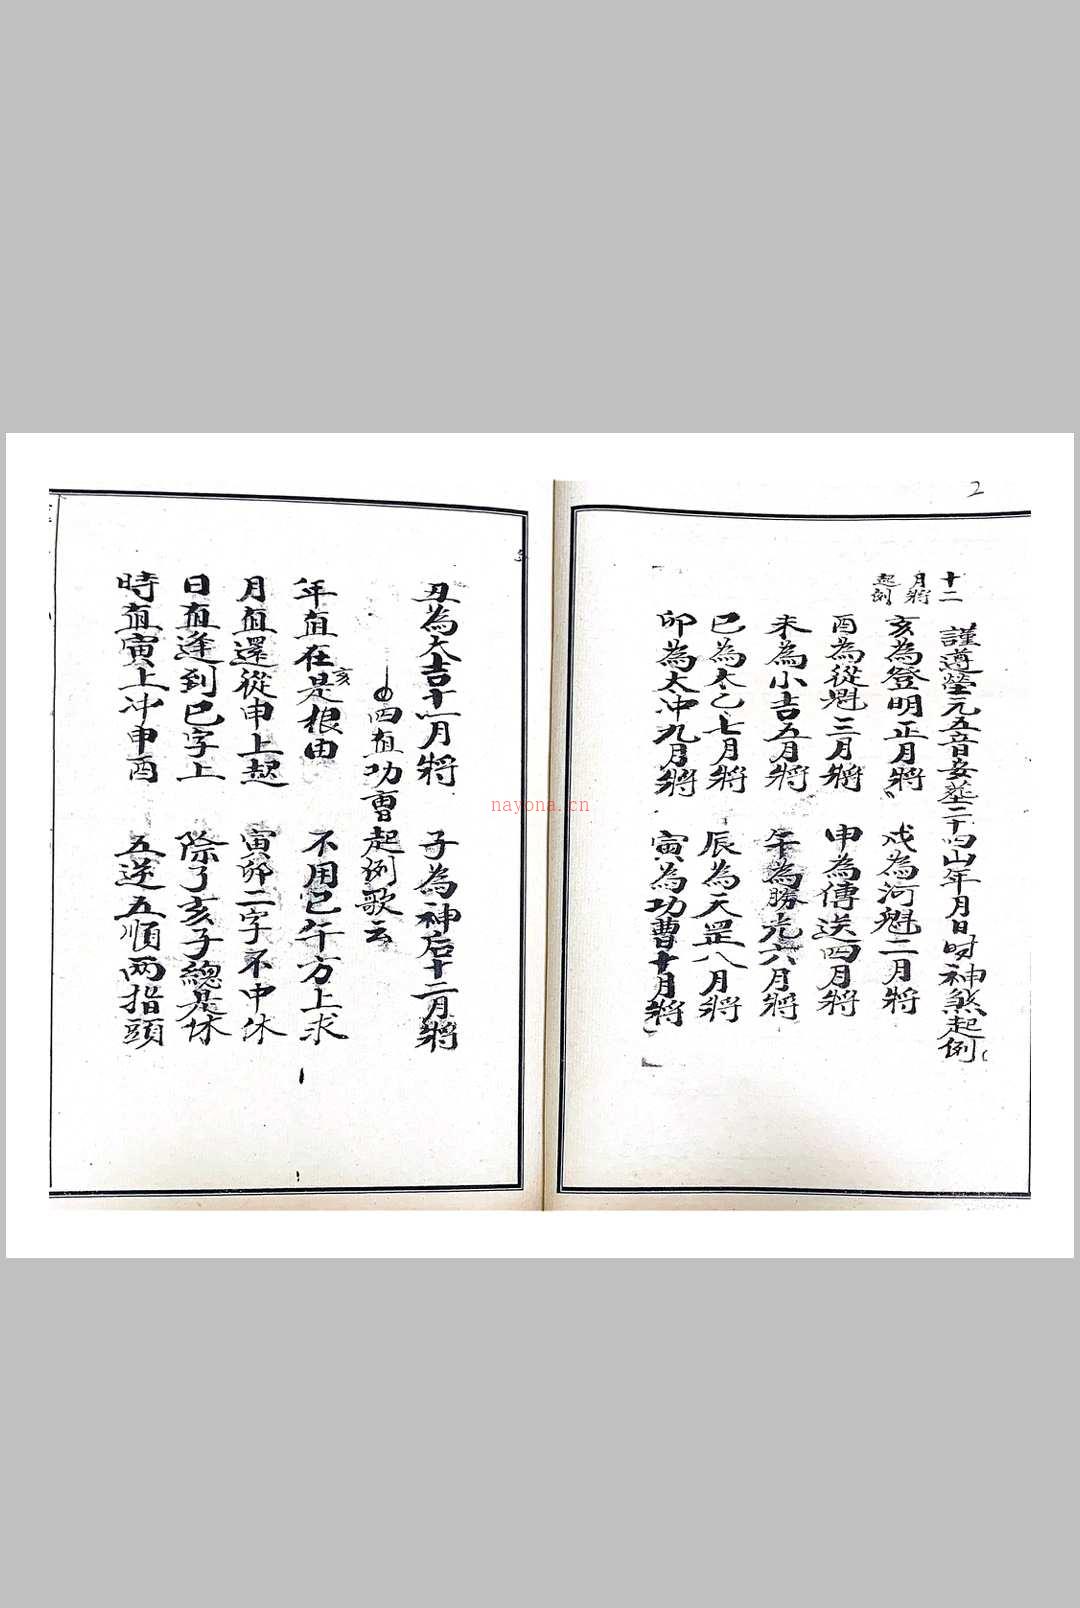 2
十二
月將
起例
謹遵瑩元五音安墓二十四山年月日時神煞起例
亥為登明正月將 戌為河魁二月將
酉為從魁三月將 申為傳送四月將
未為小吉五月將 午為勝光六月將
巳為太乙七月將 辰為天罡八月將
卯為太冲九月將 寅為功曹十月將
丑為大吉十一月將 子為神后十二月將
四值功曹起例歌云
年值在亥是根由 不用巳午方上求
月值還從申上起 寅卯二字不中休
日值逢到巳字上 除了亥子總是休
時值寅上冲申酉 五逆五順两指頭
nayona.cn